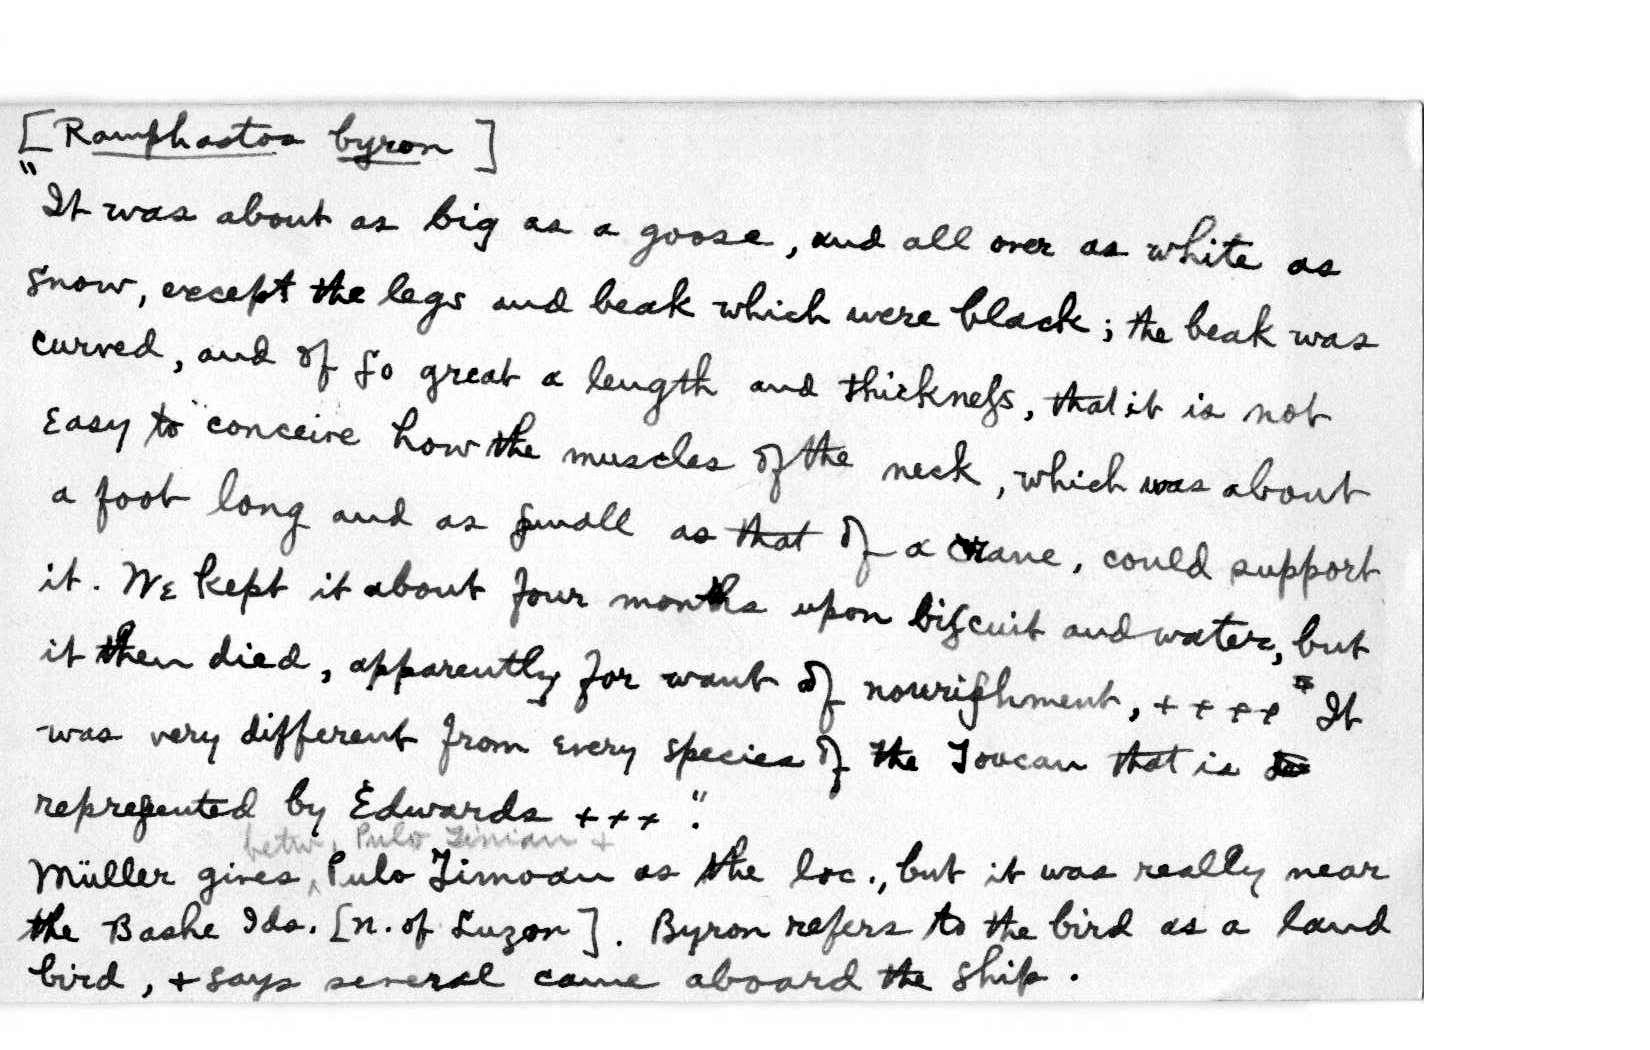 [Ramphastos byron]
"It was about as big as a goose, and all over as white as
snow, except the legs and beak which were black; the beak was
curved, and of ſo great a length and thickneſs, that it is not
easy to conceive how the muscles of the neck, which was about
a foot long and as ſmall as that of a crane, could support
it. We kept it about four months upon biſcuit and water, but
it then died, apparently for want of nouriſhment, + + + + " It
was very different from every species of the Toucan that is
repreſented by Edwards + + + ".
betw. Pulo Tinian +
Müller gives ‸ Pulo Timoan as the loc., but it was really near
the Bashe Ids. [n. of Luzon]. Byron refers to the bird as a land
bird, + says several came aboard the ship.